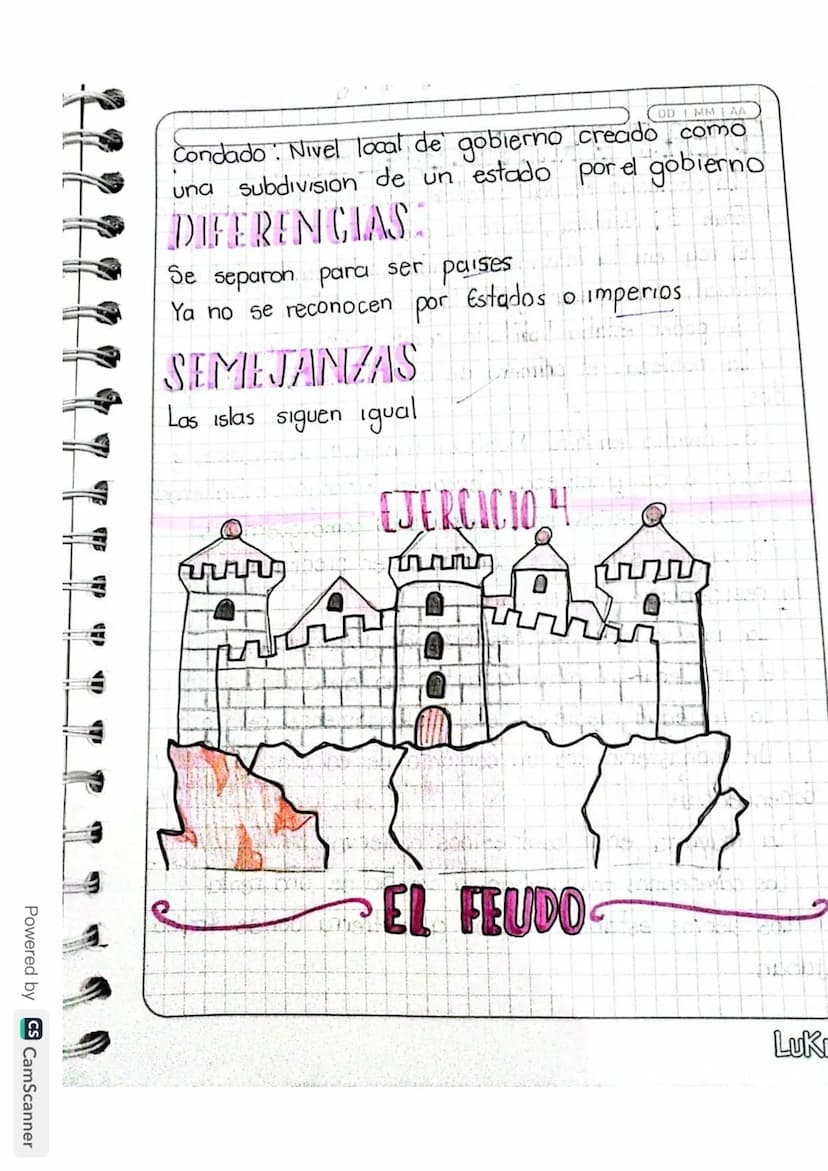 DD | MM | AA
Condado: Nivel local de gobierno creado como
una subdivision de un estado por el gobierno
DIFERENCIAS:
Se separon para ser paises
Ya no se reconocen por Estados o imperios
SEMEJANZAS
Las islas siguen igual
EJERCICIO 4
EL FEUDO
Powered by CS CamScanner